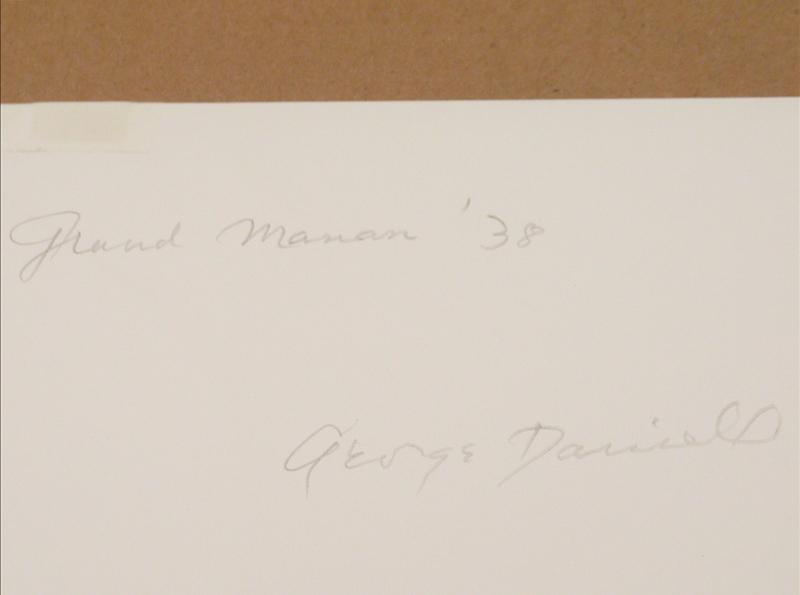 Grand Manan '38
George Daniell